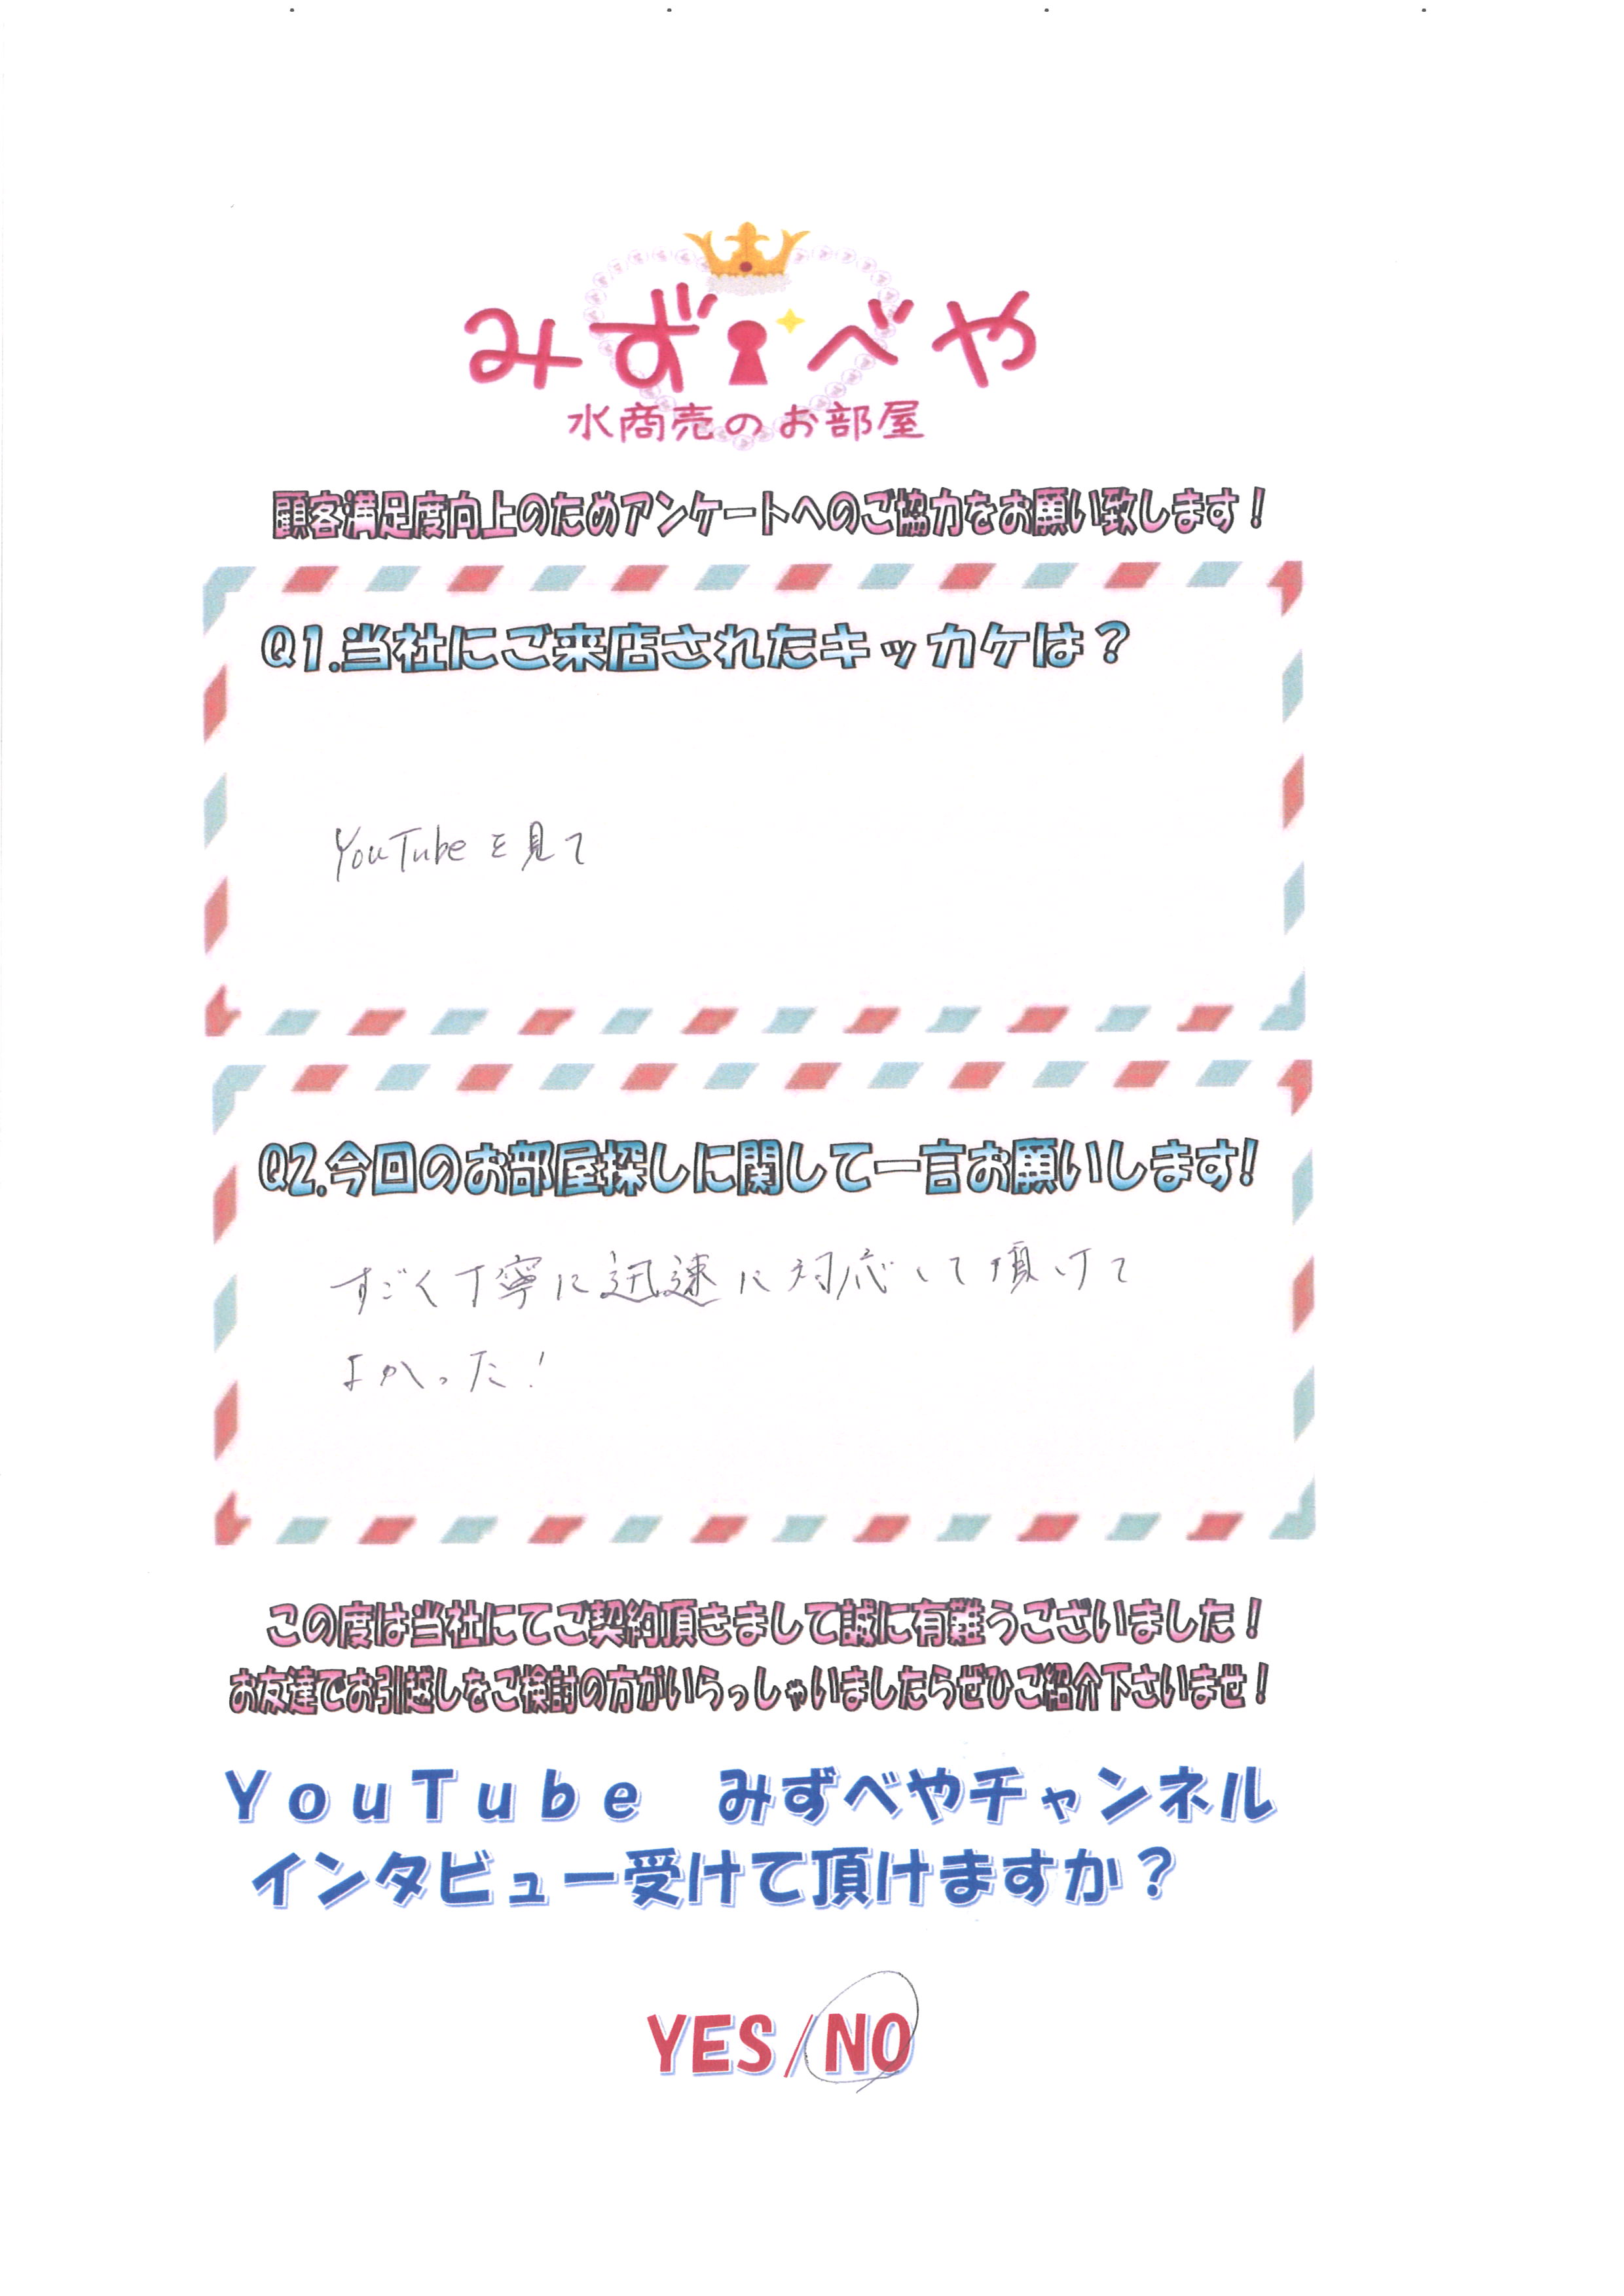 みずべや
水商売のお部屋
顧客満足度向上のためアンケートへのご協力をお願い致します！
Q1.当社にご来店されたキッカケは？
YouTubeを見て
Q2.今回のお部屋探しに関して一言お願いします!
すごく丁寧に迅速に対応して頂けて
よかった!
この度は当社にてご契約頂きまして誠に有難うございました！
お友達でお引越しをご検討の方がいらっしゃいましたらぜひご紹介下さいませ！
YouTube　みずべやチャンネル
インタビュー受けて頂けますか？
YES/NO